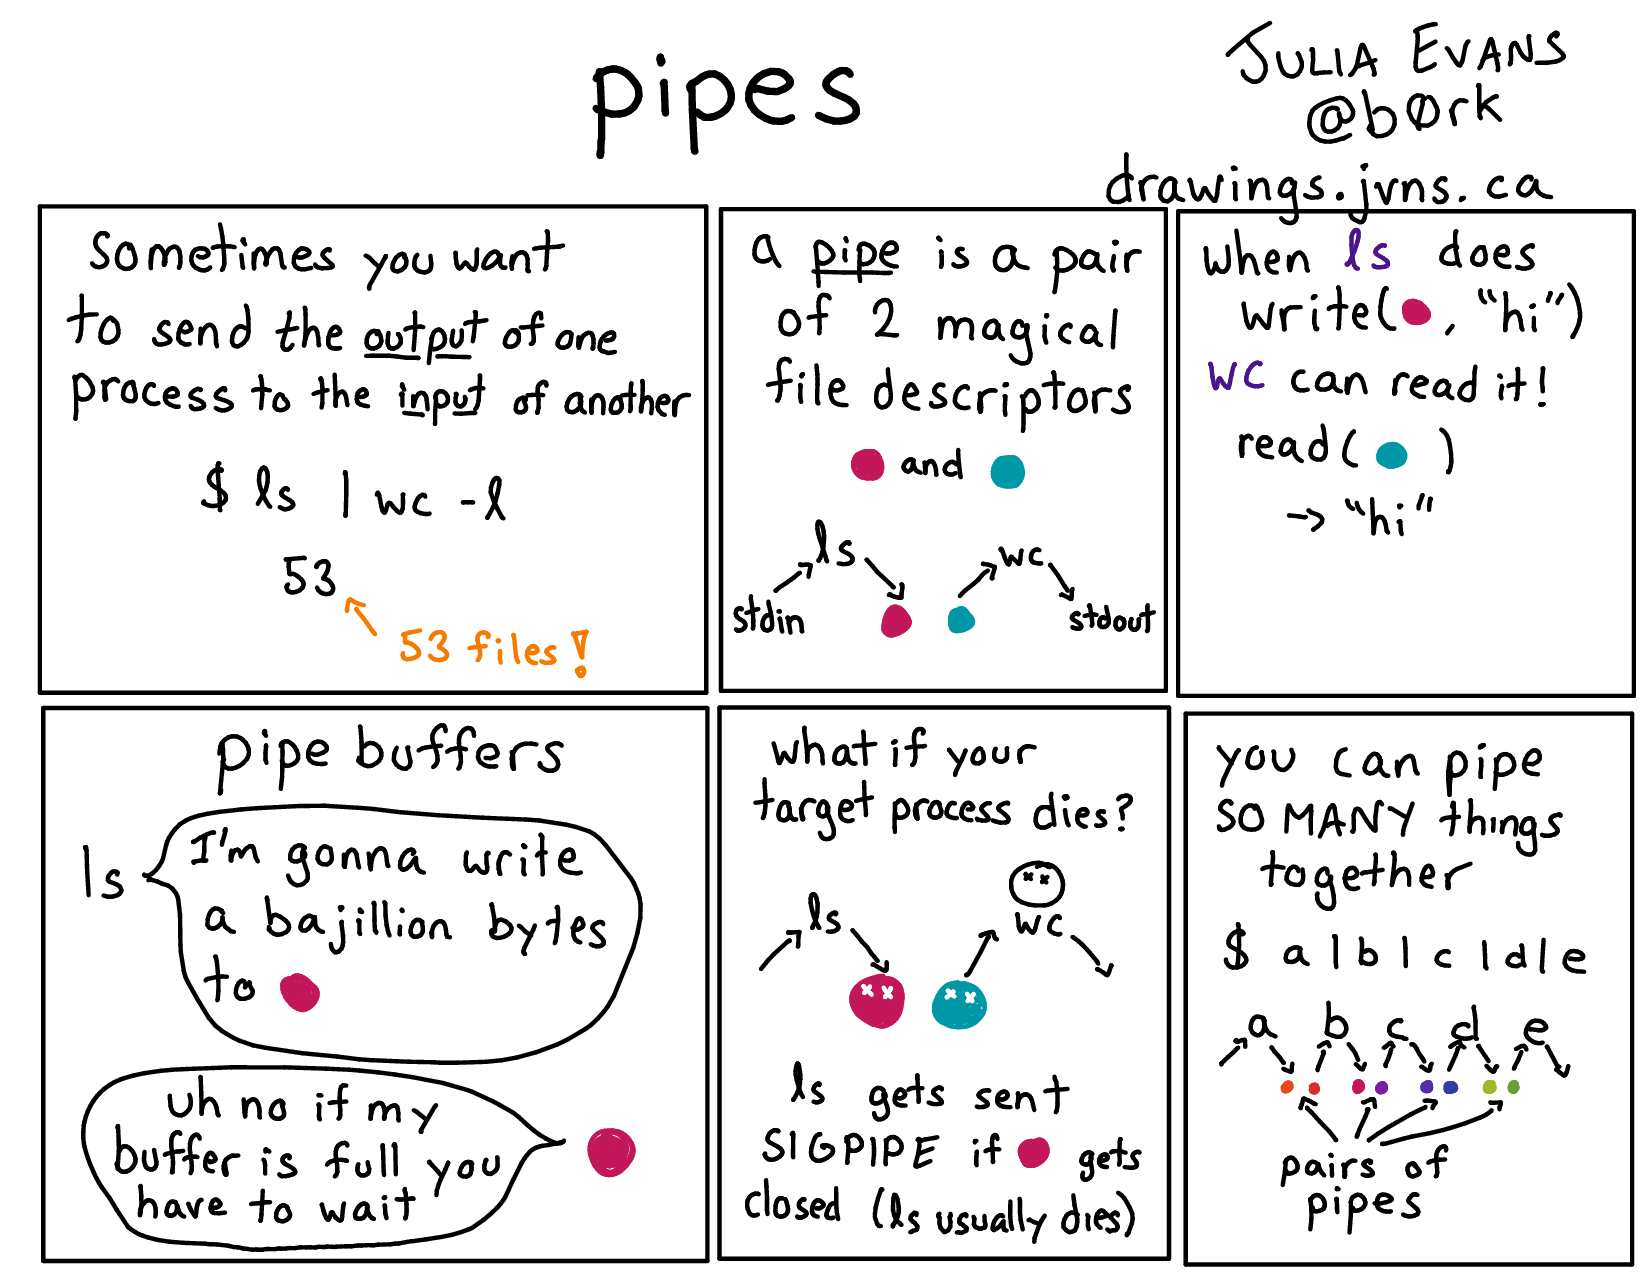 pipes
JULIA EVANS
@børk
drawings.jvns.ca
sometimes you want
to send the output of one
process to the input of another
$ ls | wc -l
53
53 files!
a pipe is a pair
of 2 magical
file descriptors
and
ls wc
stdin stdout
when ls does
write( , "hi")
wc can read it!
read( )
→ "hi"
pipe buffers
ls
I'm gonna write
a bajillion bytes
to
uh no if my
buffer is full you
have to wait
what if your
target process dies?
ls wc
ls gets sent
SIGPIPE if gets
closed (ls usually dies)
you can pipe
SO MANY things
together
$ a|b|c|d|e
a b c d e
pairs of
pipes